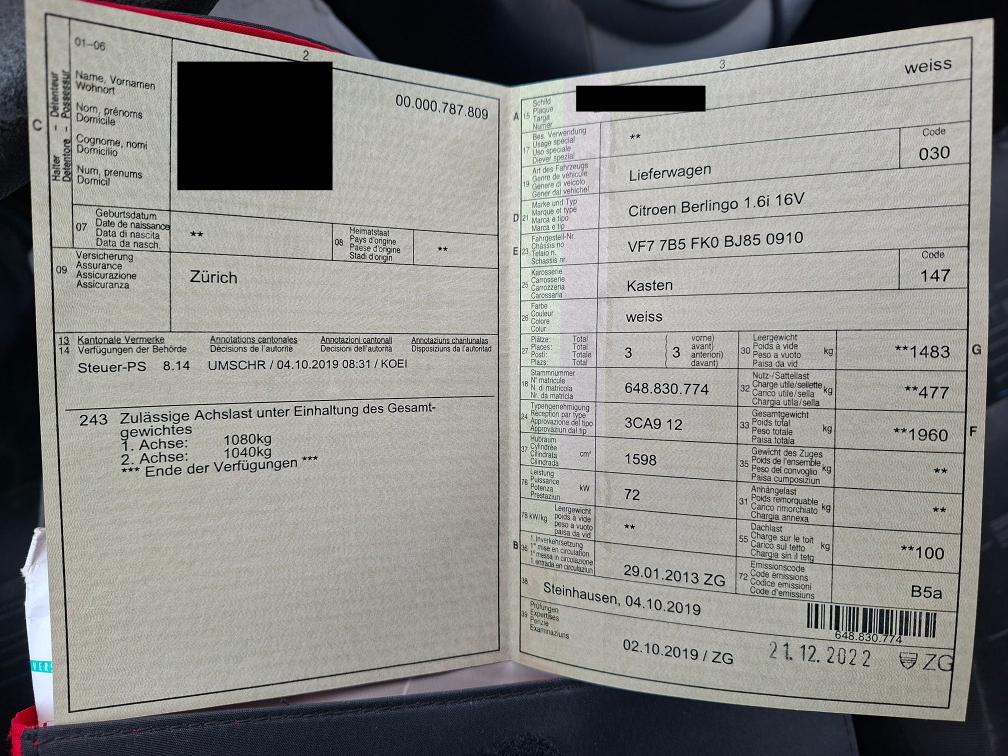 01-06
2
C
Halter - Détenteur
Detentore - Possessur
Name, Vornamen
Wohnort
Nom, prénoms
Domicile
Cognome, nomi
Domicilio
Num, prenums
Domicil
00.000.787.809
07
Geburtsdatum
Date de naissance
Data di nascita
Data da nasch.
**
08
Heimatstaat
Pays d'origine
Paese d'origine
Stadi d'origin
**
09
Versicherung
Assurance
Assicurazione
Assicuranza
Zürich
13 Kantonale Vermerke Annotations cantonales Annotazioni cantonali Annotaziuns chantunalas
14 Verfügungen der Behörde Décisions de l'autorité Decisioni dell'autorità Disposiziuns da l'autoritad
Steuer-PS 8.14 UMSCHR / 04.10.2019 08:31 / KOEI
243 Zulässige Achslast unter Einhaltung des Gesamt-
gewichtes
1. Achse: 1080kg
2. Achse: 1040kg
*** Ende der Verfügungen ***
3
weiss
A 15
Schild
Plaque
Targa
Numer
17
Bes. Verwendung
Usage spécial
Uso speciale
Diever spezial
**
19
Art des Fahrzeugs
Genre de véhicule
Genere di veicolo
Gener dal vehichel
Lieferwagen
Code
030
D 21
Marke und Typ
Marque et type
Marca e tipo
Marca e tip
Citroen Berlingo 1.6i 16V
E 23
Fahrgestell-Nr.
Châssis no
Telaio n.
Schassis nr.
VF7 7B5 FK0 BJ85 0910
25
Karosserie
Carrosserie
Carrozzeria
Carossaria
Kasten
Code
147
26
Farbe
Couleur
Colore
Colur
weiss
27
Plätze: Total
Places: Total
Posti: Totale
Plazs: Total
3
3
vorne)
avant)
anteriori)
davant)
30
Leergewicht
Poids à vide
Peso a vuoto
Paisa da vid
kg
**1483
G
18
Stammnummer
N° matricule
N. di matricola
Nr. da matricla
648.830.774
32
Nutz-/Sattellast
Charge utile/sellette
Carico utile/sella
Chargia utila/sella
kg
**477
24
Typengenehmigung
Réception par type
Approvazione del tipo
Approvaziun dal tip
3CA9 12
33
Gesamtgewicht
Poids total
Peso totale
Paisa totala
kg
**1960
F
37
Hubraum
Cylindrée
Cilindrata
Cilindrada
cm³
1598
35
Gewicht des Zuges
Poids de l'ensemble
Peso del convoglio
Paisa cumposiziun
kg
**
76
Leistung
Puissance
Potenza
Prestaziun
kW
72
31
Anhängelast
Poids remorquable
Carico rimorchiato
Chargia annexa
kg
**
78 kW/kg
Leergewicht
poids à vide
peso a vuoto
paisa da vid
**
55
Dachlast
Charge sur le toit
Carico sul tetto
Chargia sin il tetg
kg
**100
B 36
1. Inverkehrsetzung
1re mise en circulation
1a messa in circolazione
1. entrada en circulaziun
29.01.2013 ZG
72
Emissionscode
Code émissions
Codice emissioni
Code d'emissiuns
B5a
38
Steinhausen, 04.10.2019
648.830.774
39
Prüfungen
Expertises
Perizie
Examinaziuns
02.10.2019 / ZG
21.12.2022
ZG